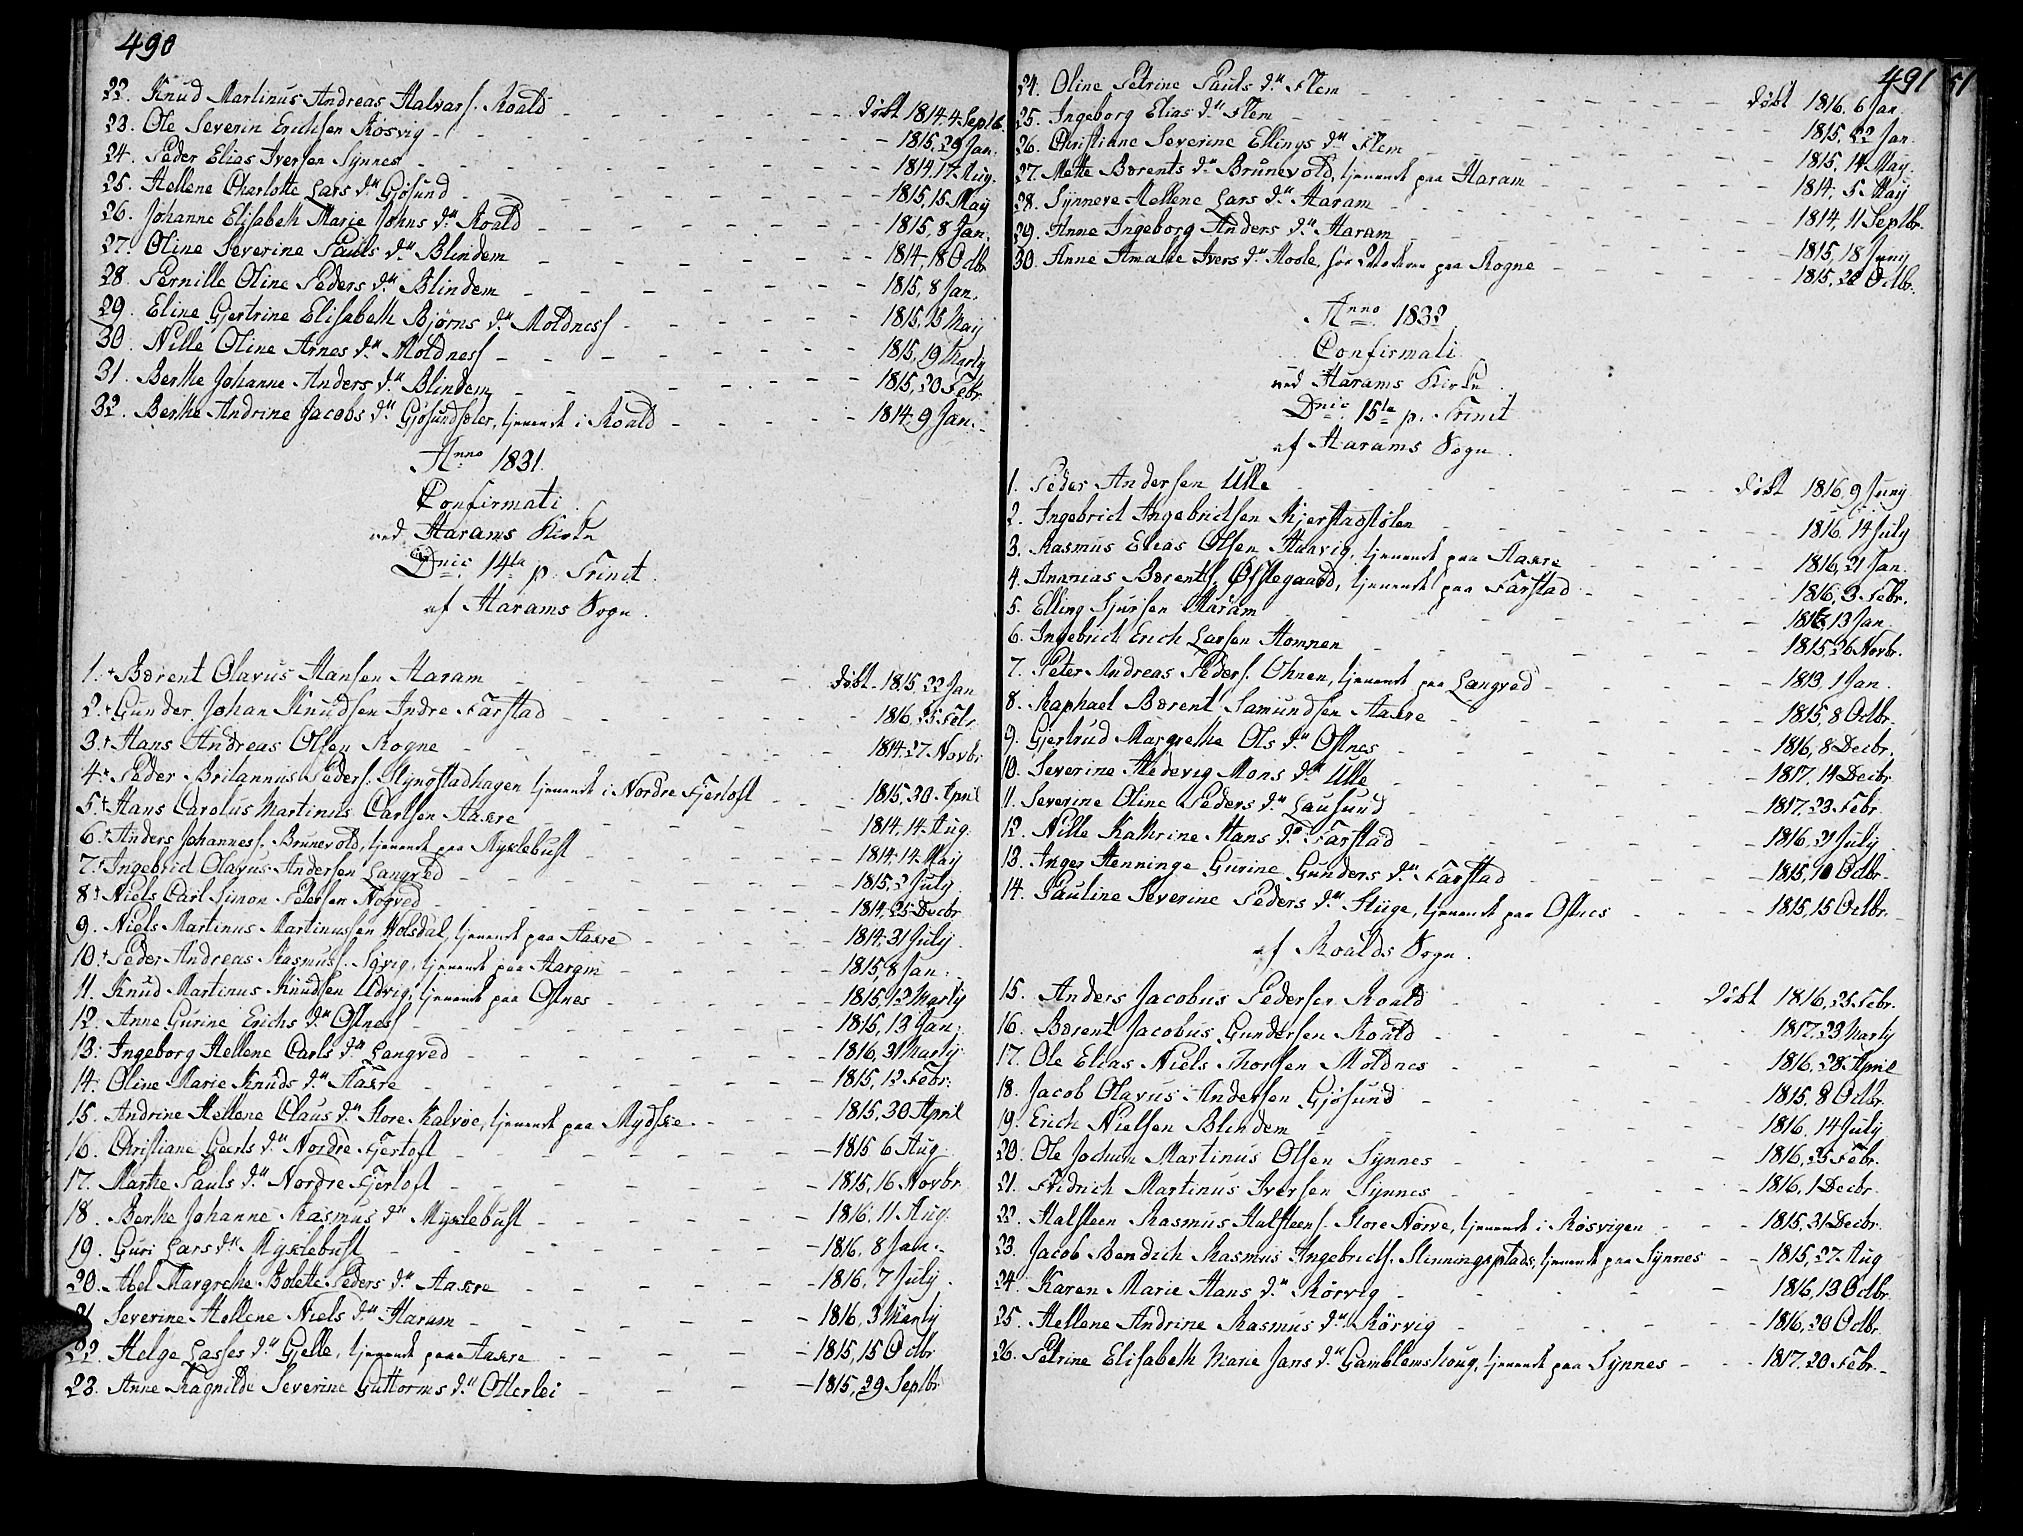 490
22. Knud Martinus Andreas Halvars. Roald - - - døbt 1814, 4 Septb.
23. Ole Severin Erichsen Røsvig - - - 1815, 29 Jan.
24. Peder Elias Iversen Synnes - - - 1814, 17 Aug.
25. Hellene Charlotte Lars d.r Gjøsund - - - 1815, 15 May
26. Johanne Elisabeth Marie Johns d.r Roald - - - 1815, 8 Jan.
27. Oline Severine Pauls d.r Blindem - - - 1814, 18 Octbr
28. Pernille Oline Peders d.r Blindem - - - 1815, 8 Jan.
29. Eline Gjertrine Elisabeth Bjørns d.r Moldness - - - 1815, 15 May
30. Nille Oline Arnes d.r Moldness - - - 1815, 19 Marty
31. Berthe Johanne Anders d.r Blindem - - - 1815, 20 Febr
32. Berthe Andrine Jacobs d.r Gjøsundsoler, tjenende i Roald - - - 1814, 9 Jan.
Anno 1831.
Confirmati
ved Harams Kirke
Dnic. 14ta p. Trinit.
af Harams Sogn.
1. + Bærent Olavus Hansen Haram - - - døbt 1815, 22 Jan
2. + Gunder Johan Knudsen Indre Farstad - - - 1816, 25 Febr.
3. + Hans Andreas Olsen Rogne - - - 1814, 27 Novbr
4. + Peder Britannus Peders. Slyngstadhagen tjenende i Nordre Fjertoft - - - 1815, 30 April
5. + Hans Carolus Martinus Carlsen Aakre - - - 1814, 14 Aug.
6. + Anders Johanness. Brunevold, tjenende paa Myklebust - - - 1814, 14 May
7. + Ingebrict Olavus Andersen Langved - - - 1815, 2 July
8. + Niels Carl Simon Petersen Nogved - - - 1814, 25 Decbr
9. Niels Martinus Martinussen Holsdal, tjenende paa Aakre - - - 1814, 31 July
10. + Peder Andreas Rasmuss. Søvig, tjenende paa Haram - - - 1815, 8 Jan.
11. Knud Martinus Knudsen Udvig, tjenende paa Ostnes - - - 1815, 12 Marty
12. Anne Gurine Erichs d.r Ostness - - - 1815, 13 Jan.
13. Ingeborg Hellene Carls d.r Langved - - - 1816, 31 Marty
14. Oline Marie Knuds d.r Aakre - - - 1815, 12 Febr.
15. Andrine Hellene Claus d.r Store Kalvøe, tjenende paa Rydske - - - 1815, 30 April
16. Christiane Geerts d.r Nordre Fjertoft - - - 1815 6 Aug
17. Marthe Pauls d.r Nordre Fjertoft - - - 1815, 16 Novbr
18. Berthe Johanne Rasmus d.r Myklebust - - - 1816, 11 Aug.
19. Guri Lars d.r Myklebust - - - 1816, 8 Jan.
20. Abel Margrethe Bolette Peders d.r Aakre - - - 1816, 7 July
21 Severine Hellene Niels d.r Haram - - - 1816, 3 Marty
22. Helge Lasses d.r Gjelle, tjenende paa Aakre - - - 1815, 15 Octbr
23. Anne Ragnilde Severine Guttorms d.r Otterlei - - - 1815, 29 Septbr
491
51
24. Oline Petrine Pauls d.r Flem - - - døbt 1816, 6 Jan.
25. Ingeborg Elias d.r Flem - - - 1815, 22 Jan.
26. Christiane Severine Ellings d.r Flem - - - 1815, 14 May
27. Mette Bærents d.r Brunevold, tjenende paa Haram - - - 1814, 5 May
28. Synneve Hellene Lars d.r Haram - - - 1814, 11 Septbr.
29. Anne Ingeborg Anders d.r Haram - - - 1815, 18 Juny
30. Anne Amalie Ivers d.r Roole, hos paa Rogne - - - 1815, 22 Octbr.
Anno 1832
Confirmati
ved Harams Kirke
Dnic. 15ta p. Trinit
af Harams Sogn.
1. Peder Andersen Ulle - - - døbt 1816, 9 Juny
2. Ingebrict Ingebrictsen Kjerstadstølen - - - 1816, 14 July
3. Rasmus Elias Olsen Haavig, tjenende paa Aakre - - - 1816, 21 Jan.
4. Ananias Bærents. Østegaard, tjenende paa Farstad - - - 1816, 3 Febr.
5. Elling Sjursen Haram - - - 1816, 13 Jan.
6. Ingebrict Erich Larsen Homnen - - - 1815, 26 Novbr.
7. Peter Andreas Peders. Ohnen, tjenende paa Langved - - - 1813, 1 Jan.
8. Raphael Bærent Samundsen Aakre - - - 1815, 8 Octbr.
9. Gjertrud Margrethe Ols d.r Ostnes - - - 1816, 8 Decbr.
10. Severine Hedevig Mons d.r Ulle - - - 1817, 14 Decbr
11. Severine Oline Peders d.r Lausund - - - 1817, 23 Febr.
12. Nille Kathrine Hans d.r Farstad - - - 1816, 21 July
13. Inger Henninge Gurine Gunders d.r Farstad - - - 1815, 10 Octbr.
14. Pauline Severine Peders d.r Stüge, tjenende paa Ostnes - - - 1815, 15 Octbr.
af Roalds Sogn.
15. Anders Jacobus Pedersen Roald - - - døbt 1816, 25 Febr.
16. Bærent Jacobus Gundersen Roald - - - 1817, 23 Marty
17. Ole Elias Niels Thorsen Moldnes - - - 1816, 28 April
18. Jacob Olavus Andersen Gjøsund - - - 1815, 8 Octbr.
19. Erich Nielsen Blindem - - - 1816, 14 July
20. Ole Jochum Martinus Olsen Synnes - - - 1816, 25 Febr.
21. Fridrich Martinus Iversen Synnes - - - 1816, 1 Decbr.
22. Halsteen Rasmus Halsteens. Store Nørve, tjenende i Røsvigen - - - 1815, 31 Decbr.
23. Jacob Bendich Rasmus Ingebricts. Slinningsplads, tjenende paa Synnes - - 1815, 27 Aug
24. Karen Marie Hans d.r Rørvig - - - 1816, 13 Octbr.
25. Hellene Andrine Rasmus d.r Rørvig - - - 1816, 20 Octbr.
26. Petrine Elisabeth Marie Jans d.r Gamblemshoug, tjenende paa Synnes - - - 1817, 20 Febr.